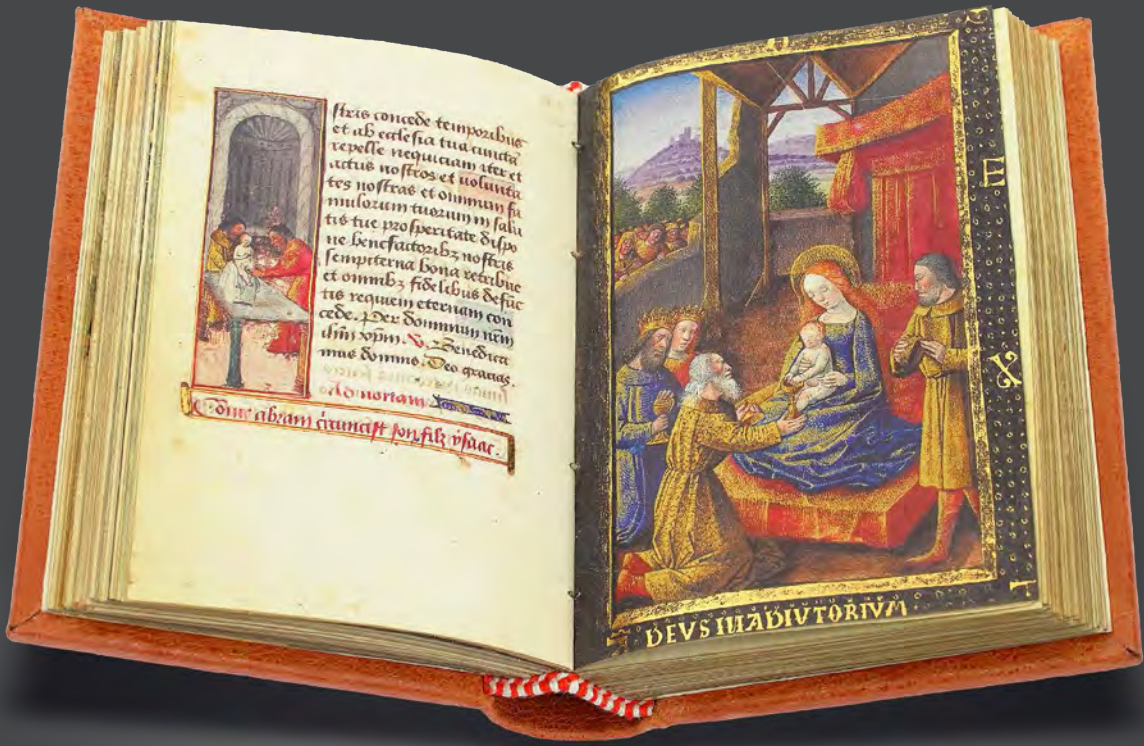 stris concede temporibus
et ab ecclesia tua cuncta
repelle nequiciam iter et
actus nostros et volunta
tes nostras et omnium fa
mulorum tuorum in salu
tis tue prosperitate dispo
ne benefactoribz nostris
sempiterna bona retribue
et omnibz fidelibus defūc
tis requiem eternam con
cede. Per dominum nrm̄
ihm̄ xpm̄. V. Benedica
mus domino. Deo gracias.
Ad nonam
Come abram circuncist son filz ysaac.
E
X
DEVS IN ADIVTORIVM